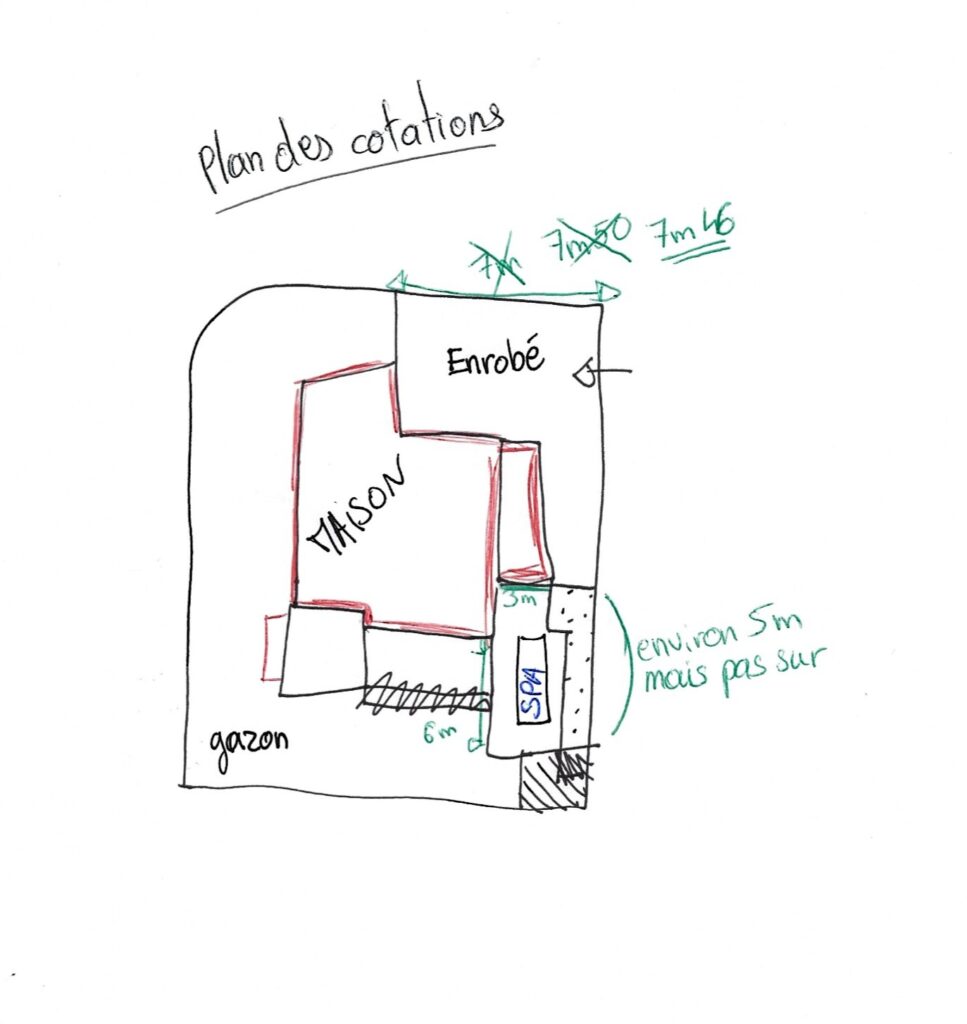 Plan des cotations
7m 7m50 7m46
Enrobé
MAISON
3m
environ 5m
mais pas sur
SPA
6m
gazon